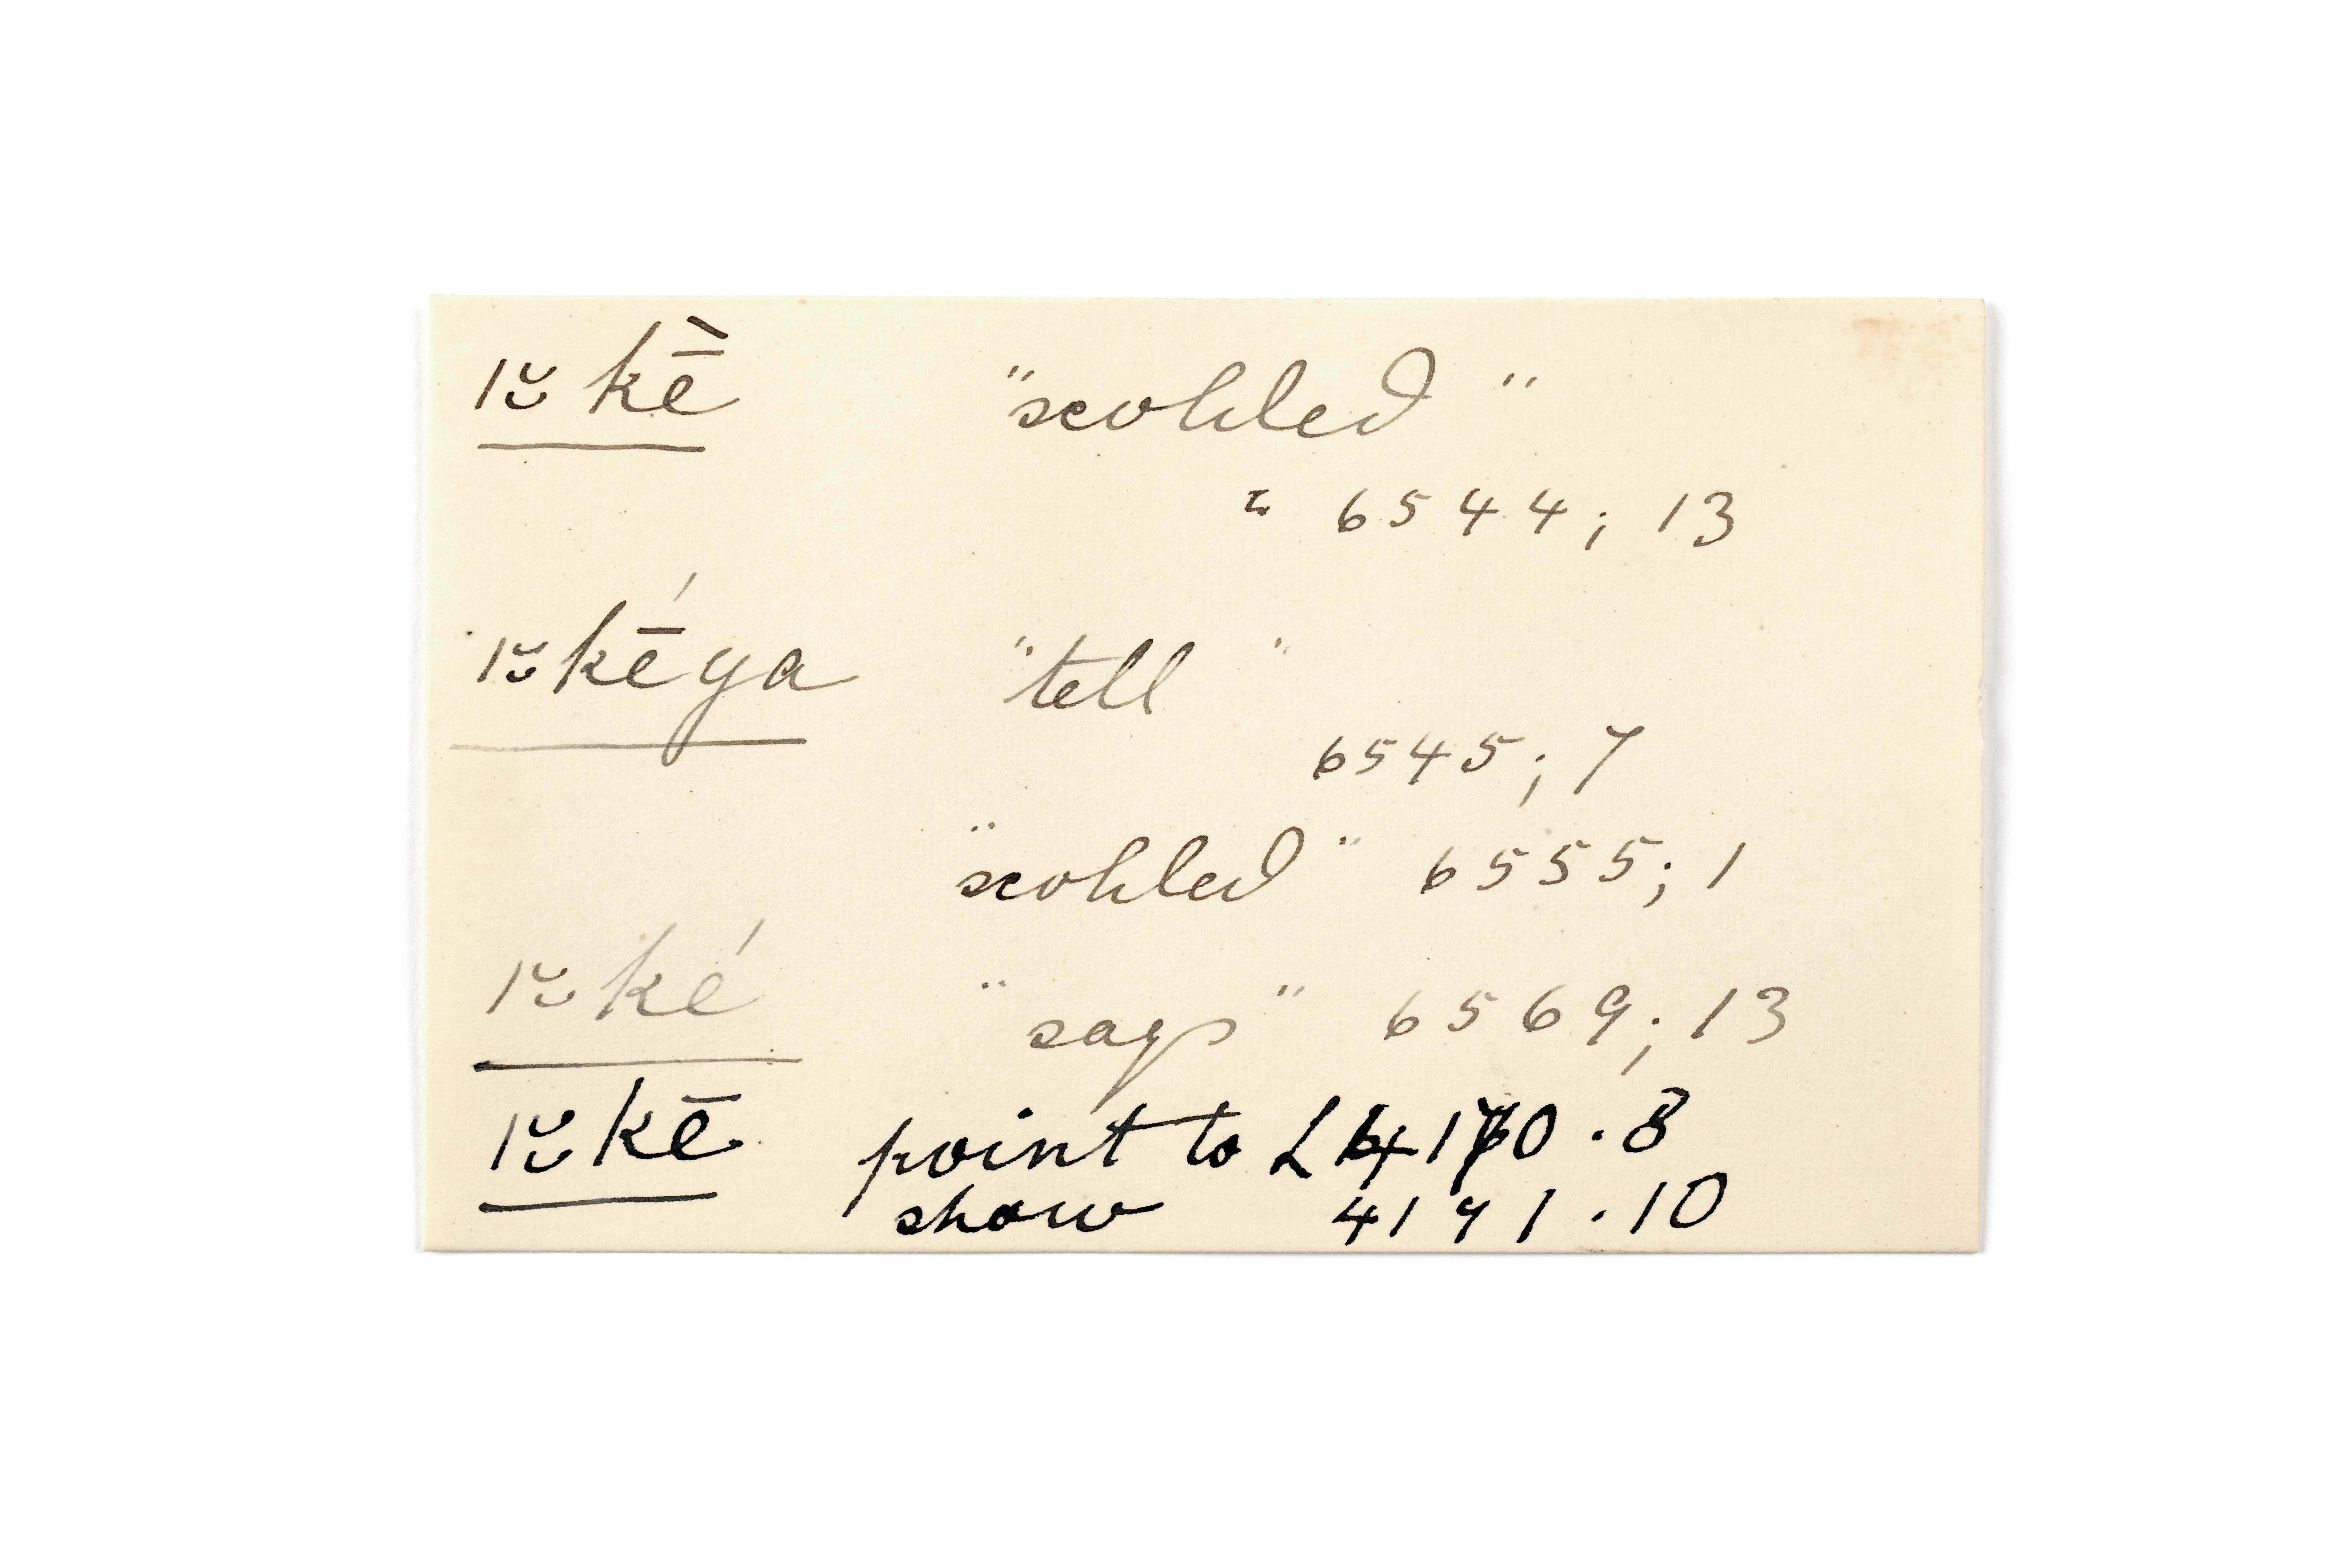 ǀ˘̮ kḕ "scolded"
" 6544; 13
ǀ˘̮ kḗya "tell"
6545; 7
"scolded" 6555; 1
ǀ˘̮ ké "says" 6569; 13
ǀ˘̮ kē point to L 4170.8
show 4171.10